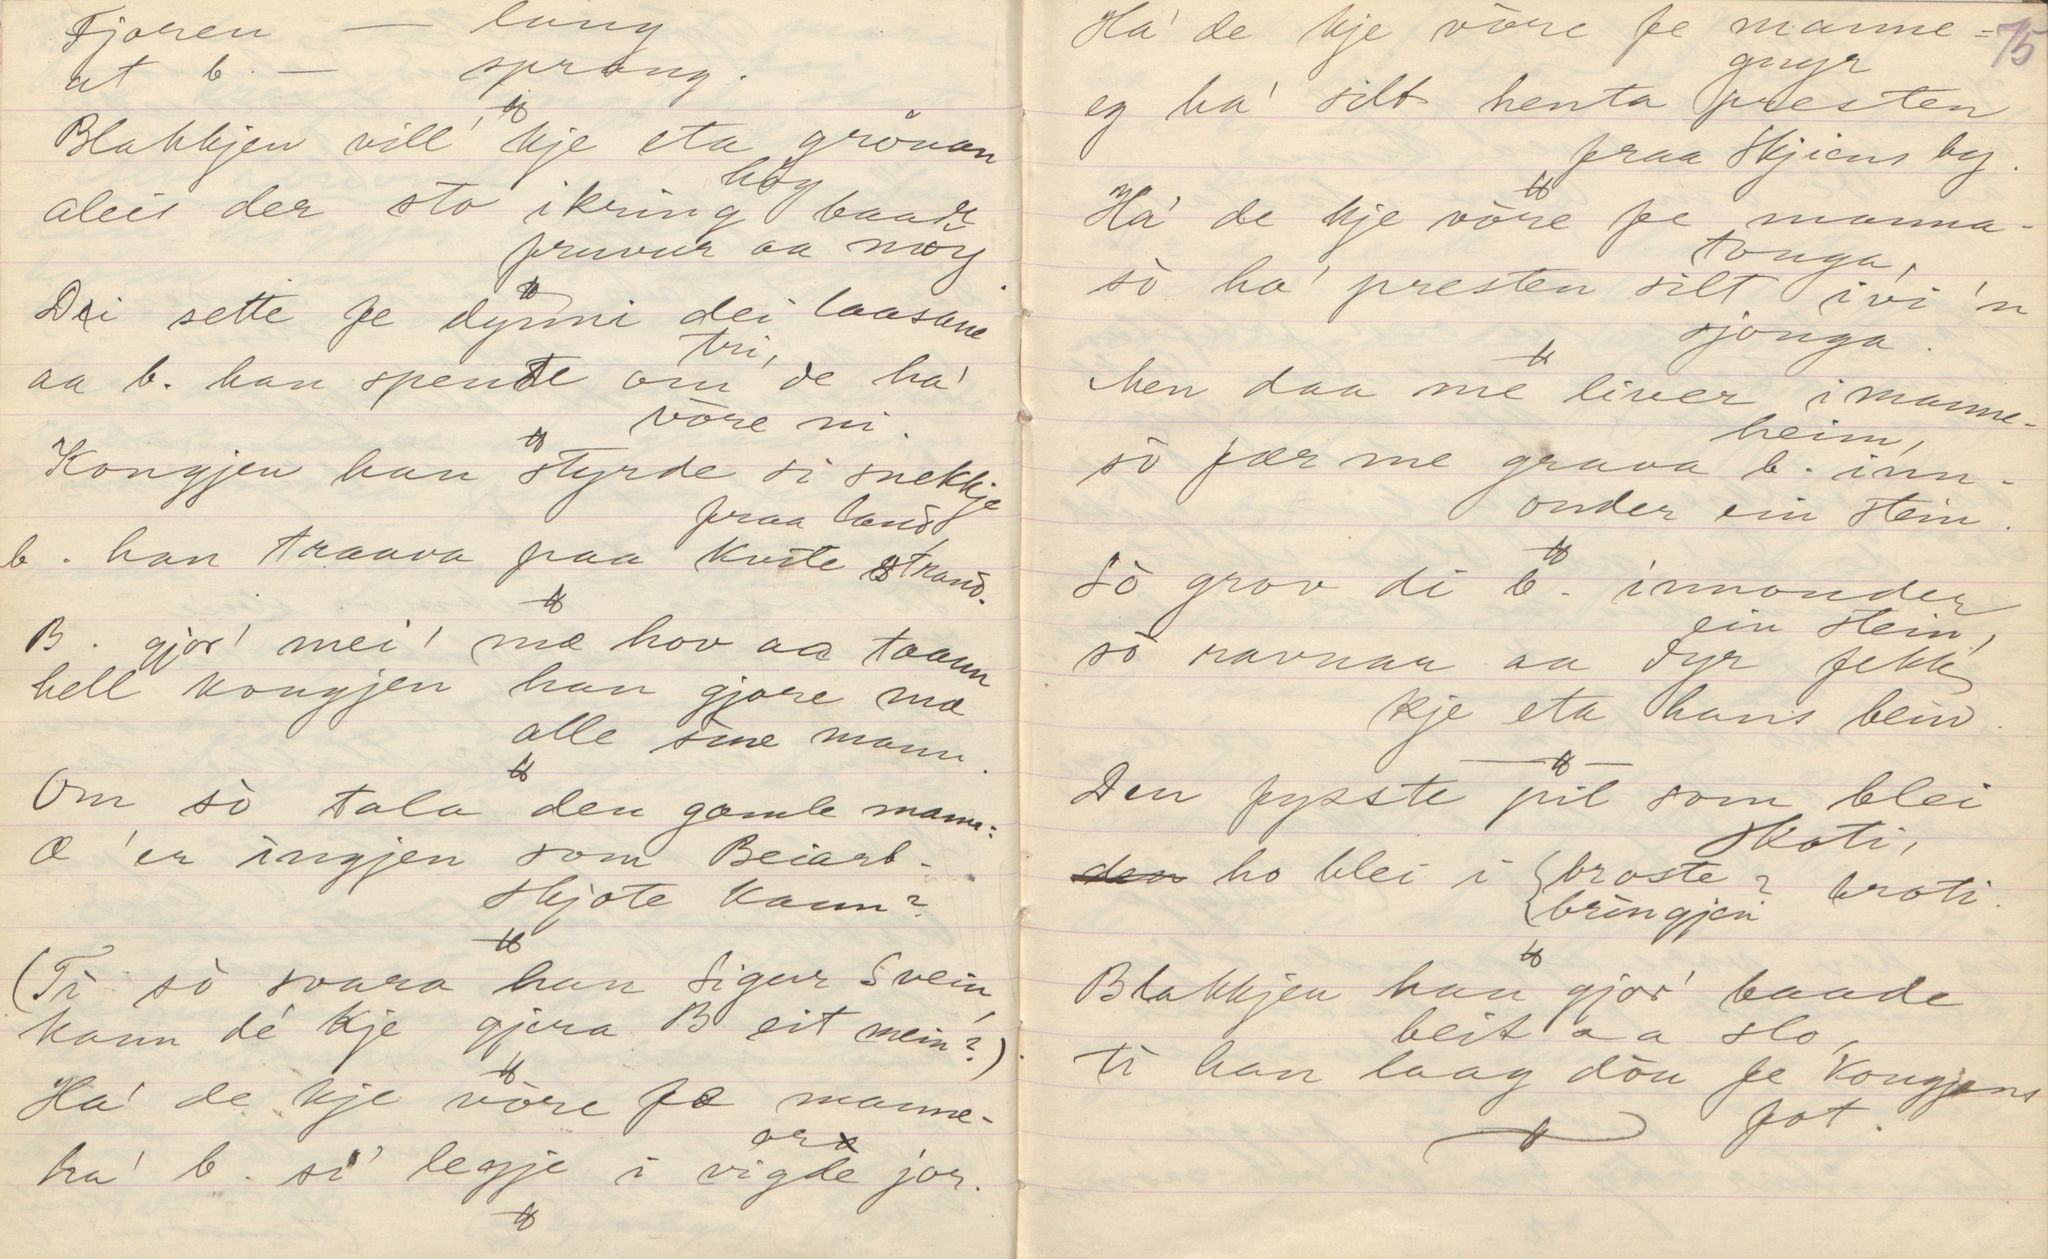 Fjoren — lang
at b. — sprang.
Blakkjen vill' kje eta grönan
höy
aleis der sto ikring baade
pruvur aa möy.
Dei sette fe dynni dei laasane
tri,
aa b. han spente om' de ha'
vöre ni.
Kongjen han styrde si snekkje
fraa land,
b. han traava paa kvite strand.
B. gjor' mei' mæ hov aa taann
hell kongjen han gjore mæ
alle sine mann.
Om sò tala den gamle mann:
Æ 'er ingjen som Beiarb-
skjote kann?
(Ti sò svara han Sigur Svein,
kann dé kje gjera B eit mein?).
Ha' de kje vöre fe manne-
ora
ha' b. si' legje i vigde jor.
Ha' de kje vöre fe manne= 75
gnyr
eg ha' silt henta presten
fraa Skjiens by.
Ha' de kje vöre fe manna-
tonga,
sò ha' presten silt ivi 'n
sjonga.
Men daa me liver i manne-
heim,
sò fær me grava b. inn-
onder ein stein.
Sò grov di b. innonder
ein stein,
sò ravnar aa dyr fekk
kje eta hans bein.
Den fysste pil som blei
skoti,
ho blei i {broste? broti.
{bringjen
Blakkjen han gjor' baade
beit aa slo,
ti han laag döu fe kongjens
fot.